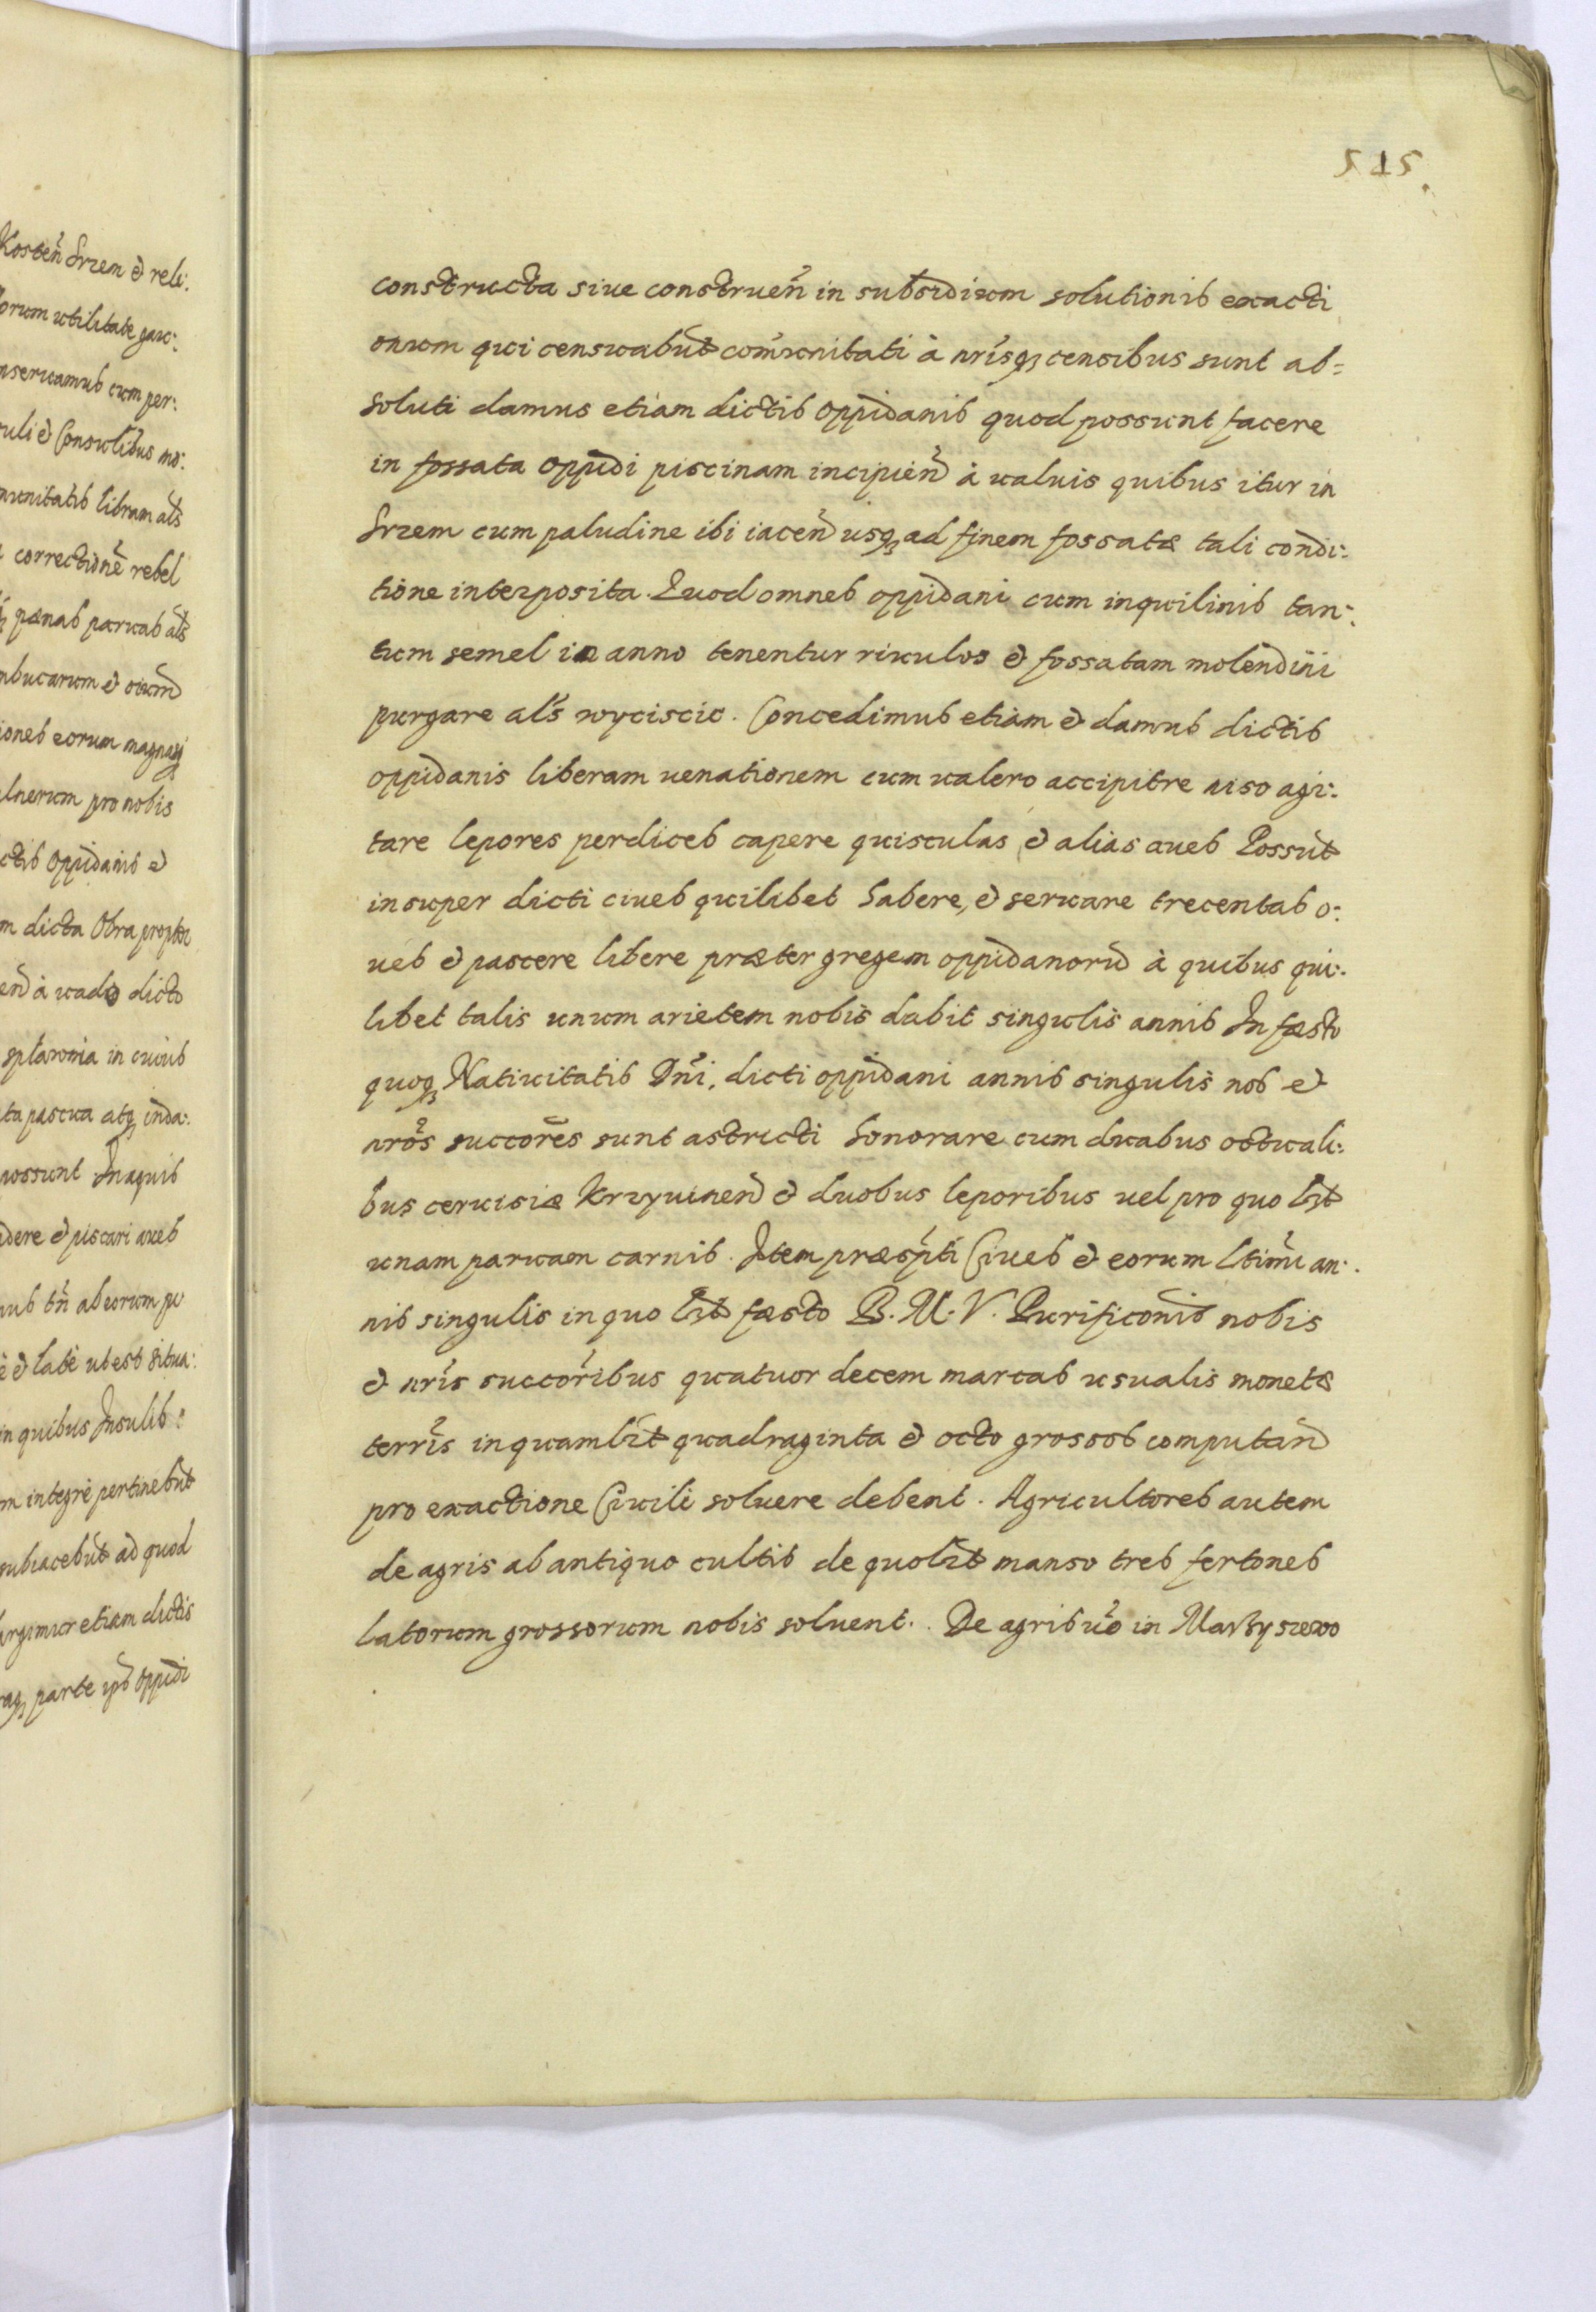 Kosteñ Srzem & reli:
orum utilitate gau:
nseruamus cum per:
uli & Consulibus mo:
munitatis libram als
correctionē rebel
pænas paruas als
mbucarum & oium
iones eorum magnasq;
lnerum pro nobis
ctis Oppidanis &
m dicta Obra propter
end à uado dicto
in cuius
ta pascua atq; inda:
possunt Inaquis
dere & piscari aues
mus tñ ab eorum pu
& labe ut est situa:
in quibus Insulis
m integrè pertinebūt
subiacebūt ad quod
argimur etiam dictis
raq; parte ips Oppidi
515.
constructa siue construeñ in subsidium solutionis exacti
onum qui censuabūt com̄unitati à nr̄isq; censibus sunt ab=
soluti damus etiam dictis Oppidanis quod possunt facere
in fossata Oppidi piscinam incipień à ualuis quibus itur in
Srzem cum paludine ibi iaceń usq; ad finem fossatæ tali condi:
tione interposita. Quod omnes oppidani cum inquilinis tan:
tum semel in anno tenentur riuulos & fossatam molendini
purgare als wyciscic. Concedimus etiam & damus dictis
oppidanis liberam uenationem cum ualero accipitre niso agi:
tare lepores perdices capere quisculas & alias aues Possūt
insuper dicti ciues quilibet habere, & seruare trecentas o:
ues & pascere libere præter gregem oppidanorū à quibus qui:
libet talis unum arietem nobis dabit singulis annis In fæsto
quoq; Natiuitatis Dn̄i, dicti oppidani annis singulis nos &
nrōs succor̄es sunt astricti honorare cum duabus octuali:
bus ceruisiæ Krzyuineń & duobus leporibus uel pro quo lbt
unam paruam carnis. Item præsc̄pti Ciues & eorum ltimi an:
nis singulis in quo lbt fæsto B. M. V. Purificonis nobis
& nr̄is succor̄ibus quatuor decem marcas usualis monetæ
terr̄is inquamlbt quadraginta & octo grossos computań
pro exactione Ciuili soluere debent. Agricultores autem
de agris ab antiquo cultis de quolbt manso tres fertones
latorum grossorum nobis soluent. De agris ūo in Marszyszewo